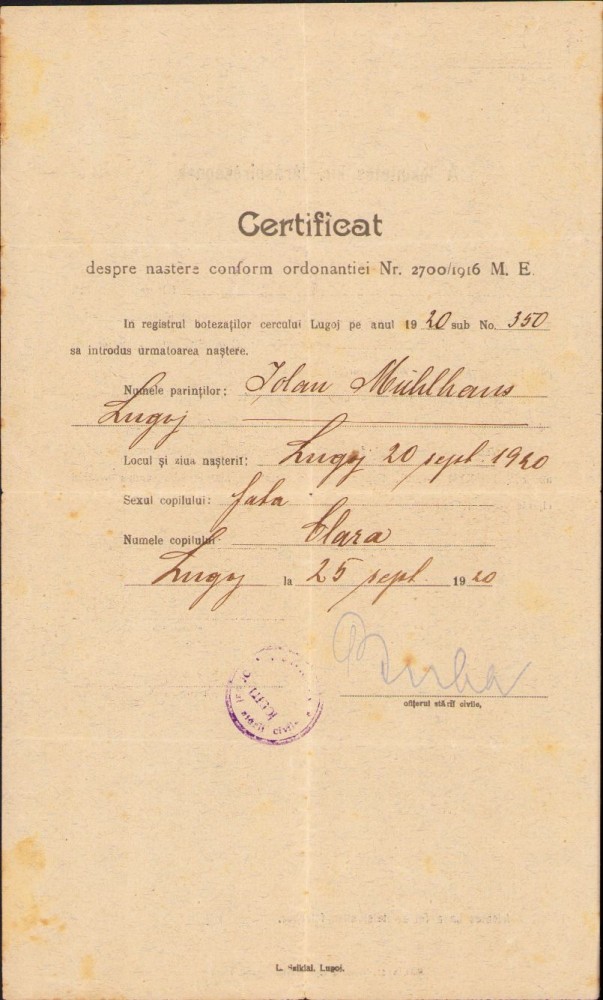 Certificat
despre nastere conform ordonantiei Nr. 2700/1916 M. E.
In registrul botezaților cercului Lugoj pe anul 1920 sub No. 350
sa introdus urmatoarea naștere.
Numele parinților: Iolan Mühlhans
Lugoj
Locul și ziua nașterii: Lugoj 20 sept. 1920
Sexul copilului: fata
Numele copilului Clara
Lugoj la 25 sept. 1920
ofițerul stării civile,
stării civile
Lugoj.